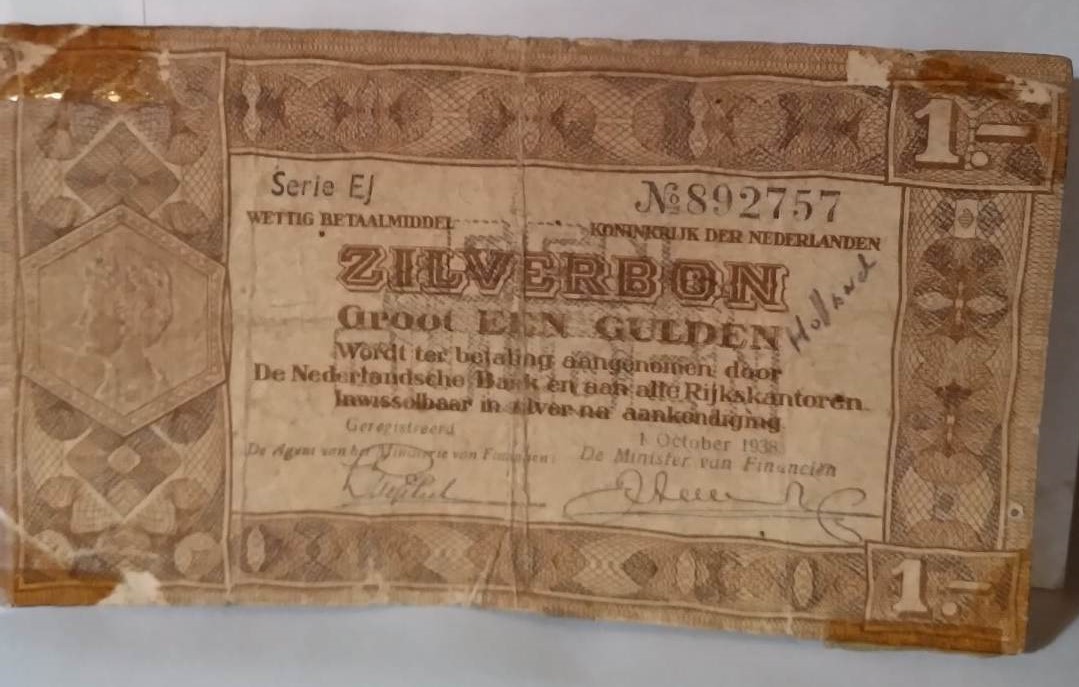 1.-
Serie EJ
№892757
WETTIG BETAALMIDDEL
KONINKRIJK DER NEDERLANDEN
ZILVERBON
Groot EEN GULDEN
Holland
Wordt ter betaling aangenomen door
De Nederlandsche Bank en aan alle Rijkskantoren.
Inwisselbaar in zilver na aankondiging
Geregistreerd
1 October 1938
De Agent van het Ministerie van Financiën:
De Minister van Financiën
1.-